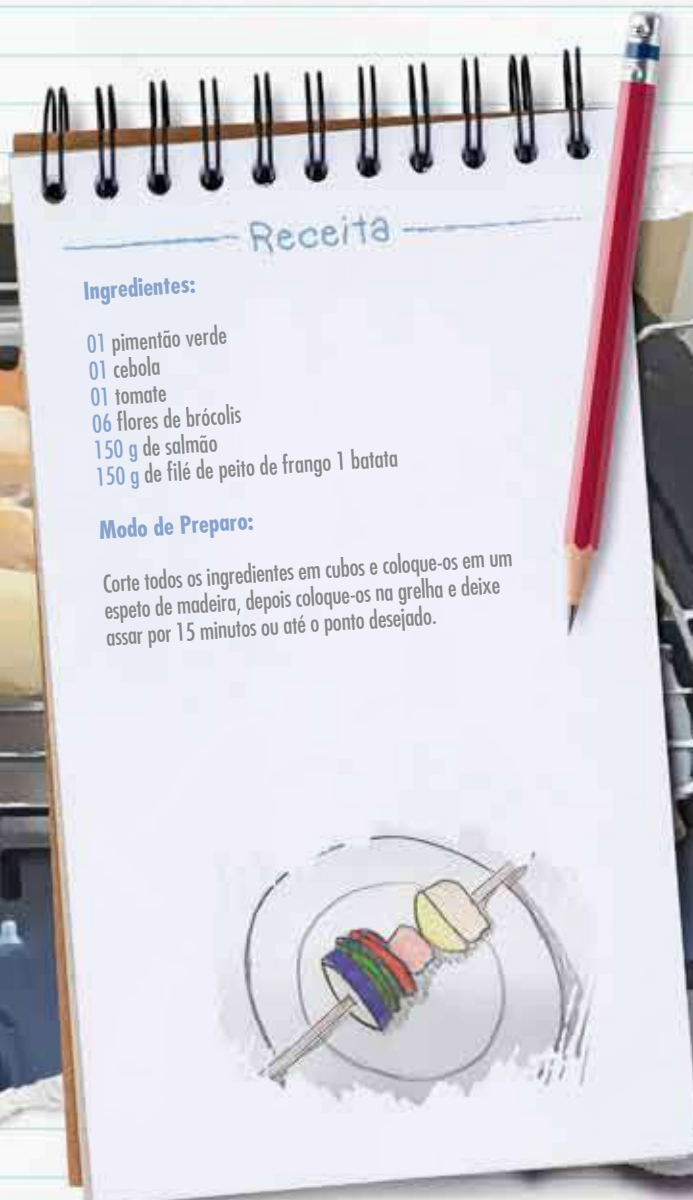 Receita
Ingredientes:
01 pimentão verde
01 cebola
01 tomate
06 flores de brócolis
150 g de salmão
150 g de filé de peito de frango 1 batata
Modo de Preparo:
Corte todos os ingredientes em cubos e coloque-os em um
espeto de madeira, depois coloque-os na grelha e deixe
assar por 15 minutos ou até o ponto desejado.